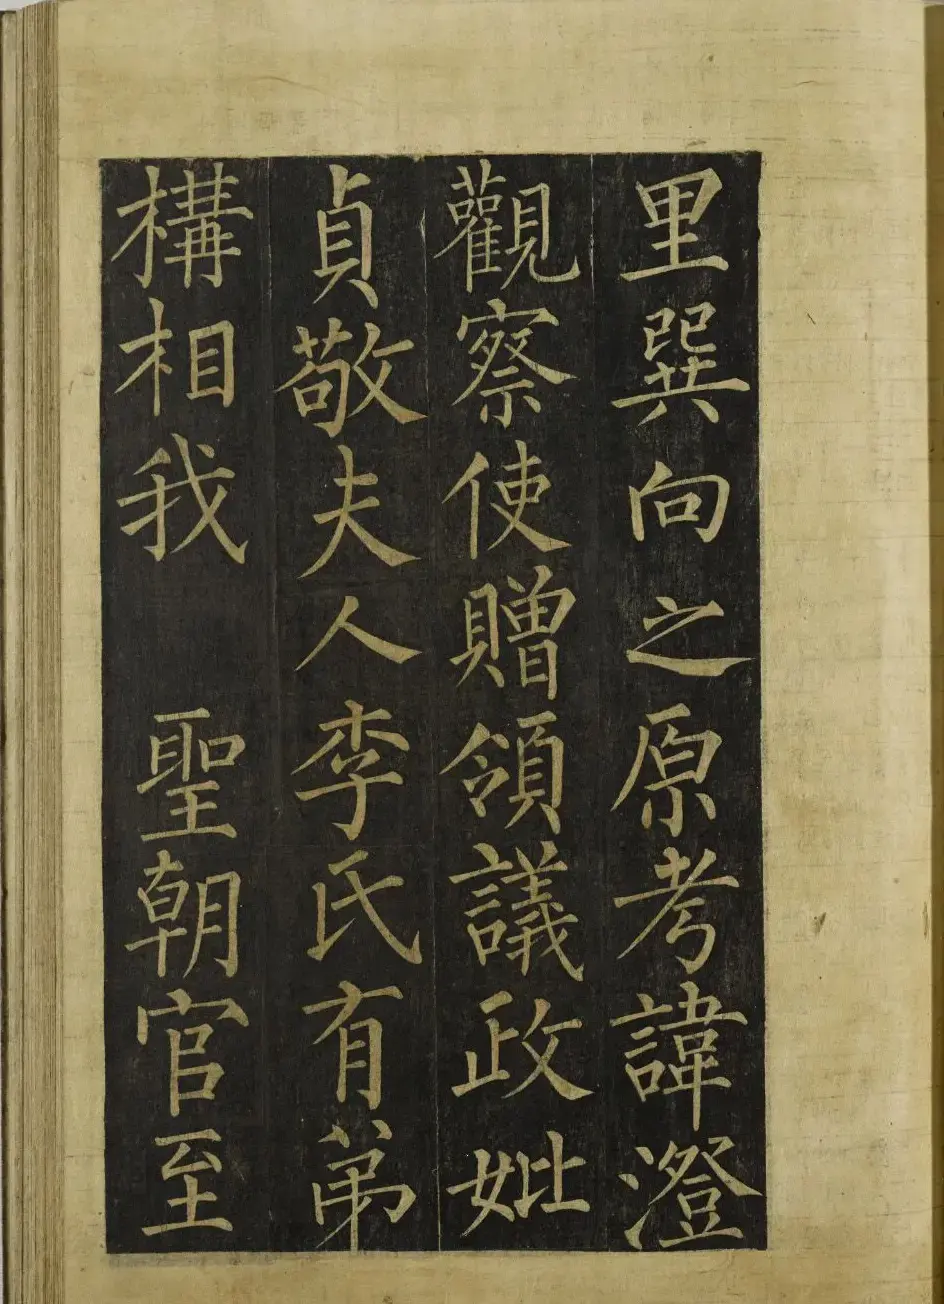 里巽向之原考諱澄
觀察使贈領議政妣
貞敬夫人李氏有弟
構相我　聖朝官至